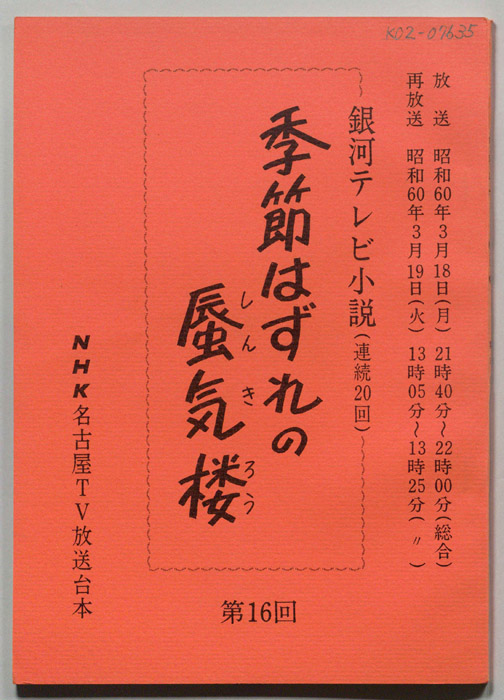 K02-07635
放送 昭和60年3月18日(月) 21時40分〜22時00分(総合)
再放送 昭和60年3月19日(火) 13時05分〜13時25分(〃)
銀河テレビ小説(連続20回)
季節はずれの
蜃気楼
しんきろう
第16回
NHK名古屋TV放送台本